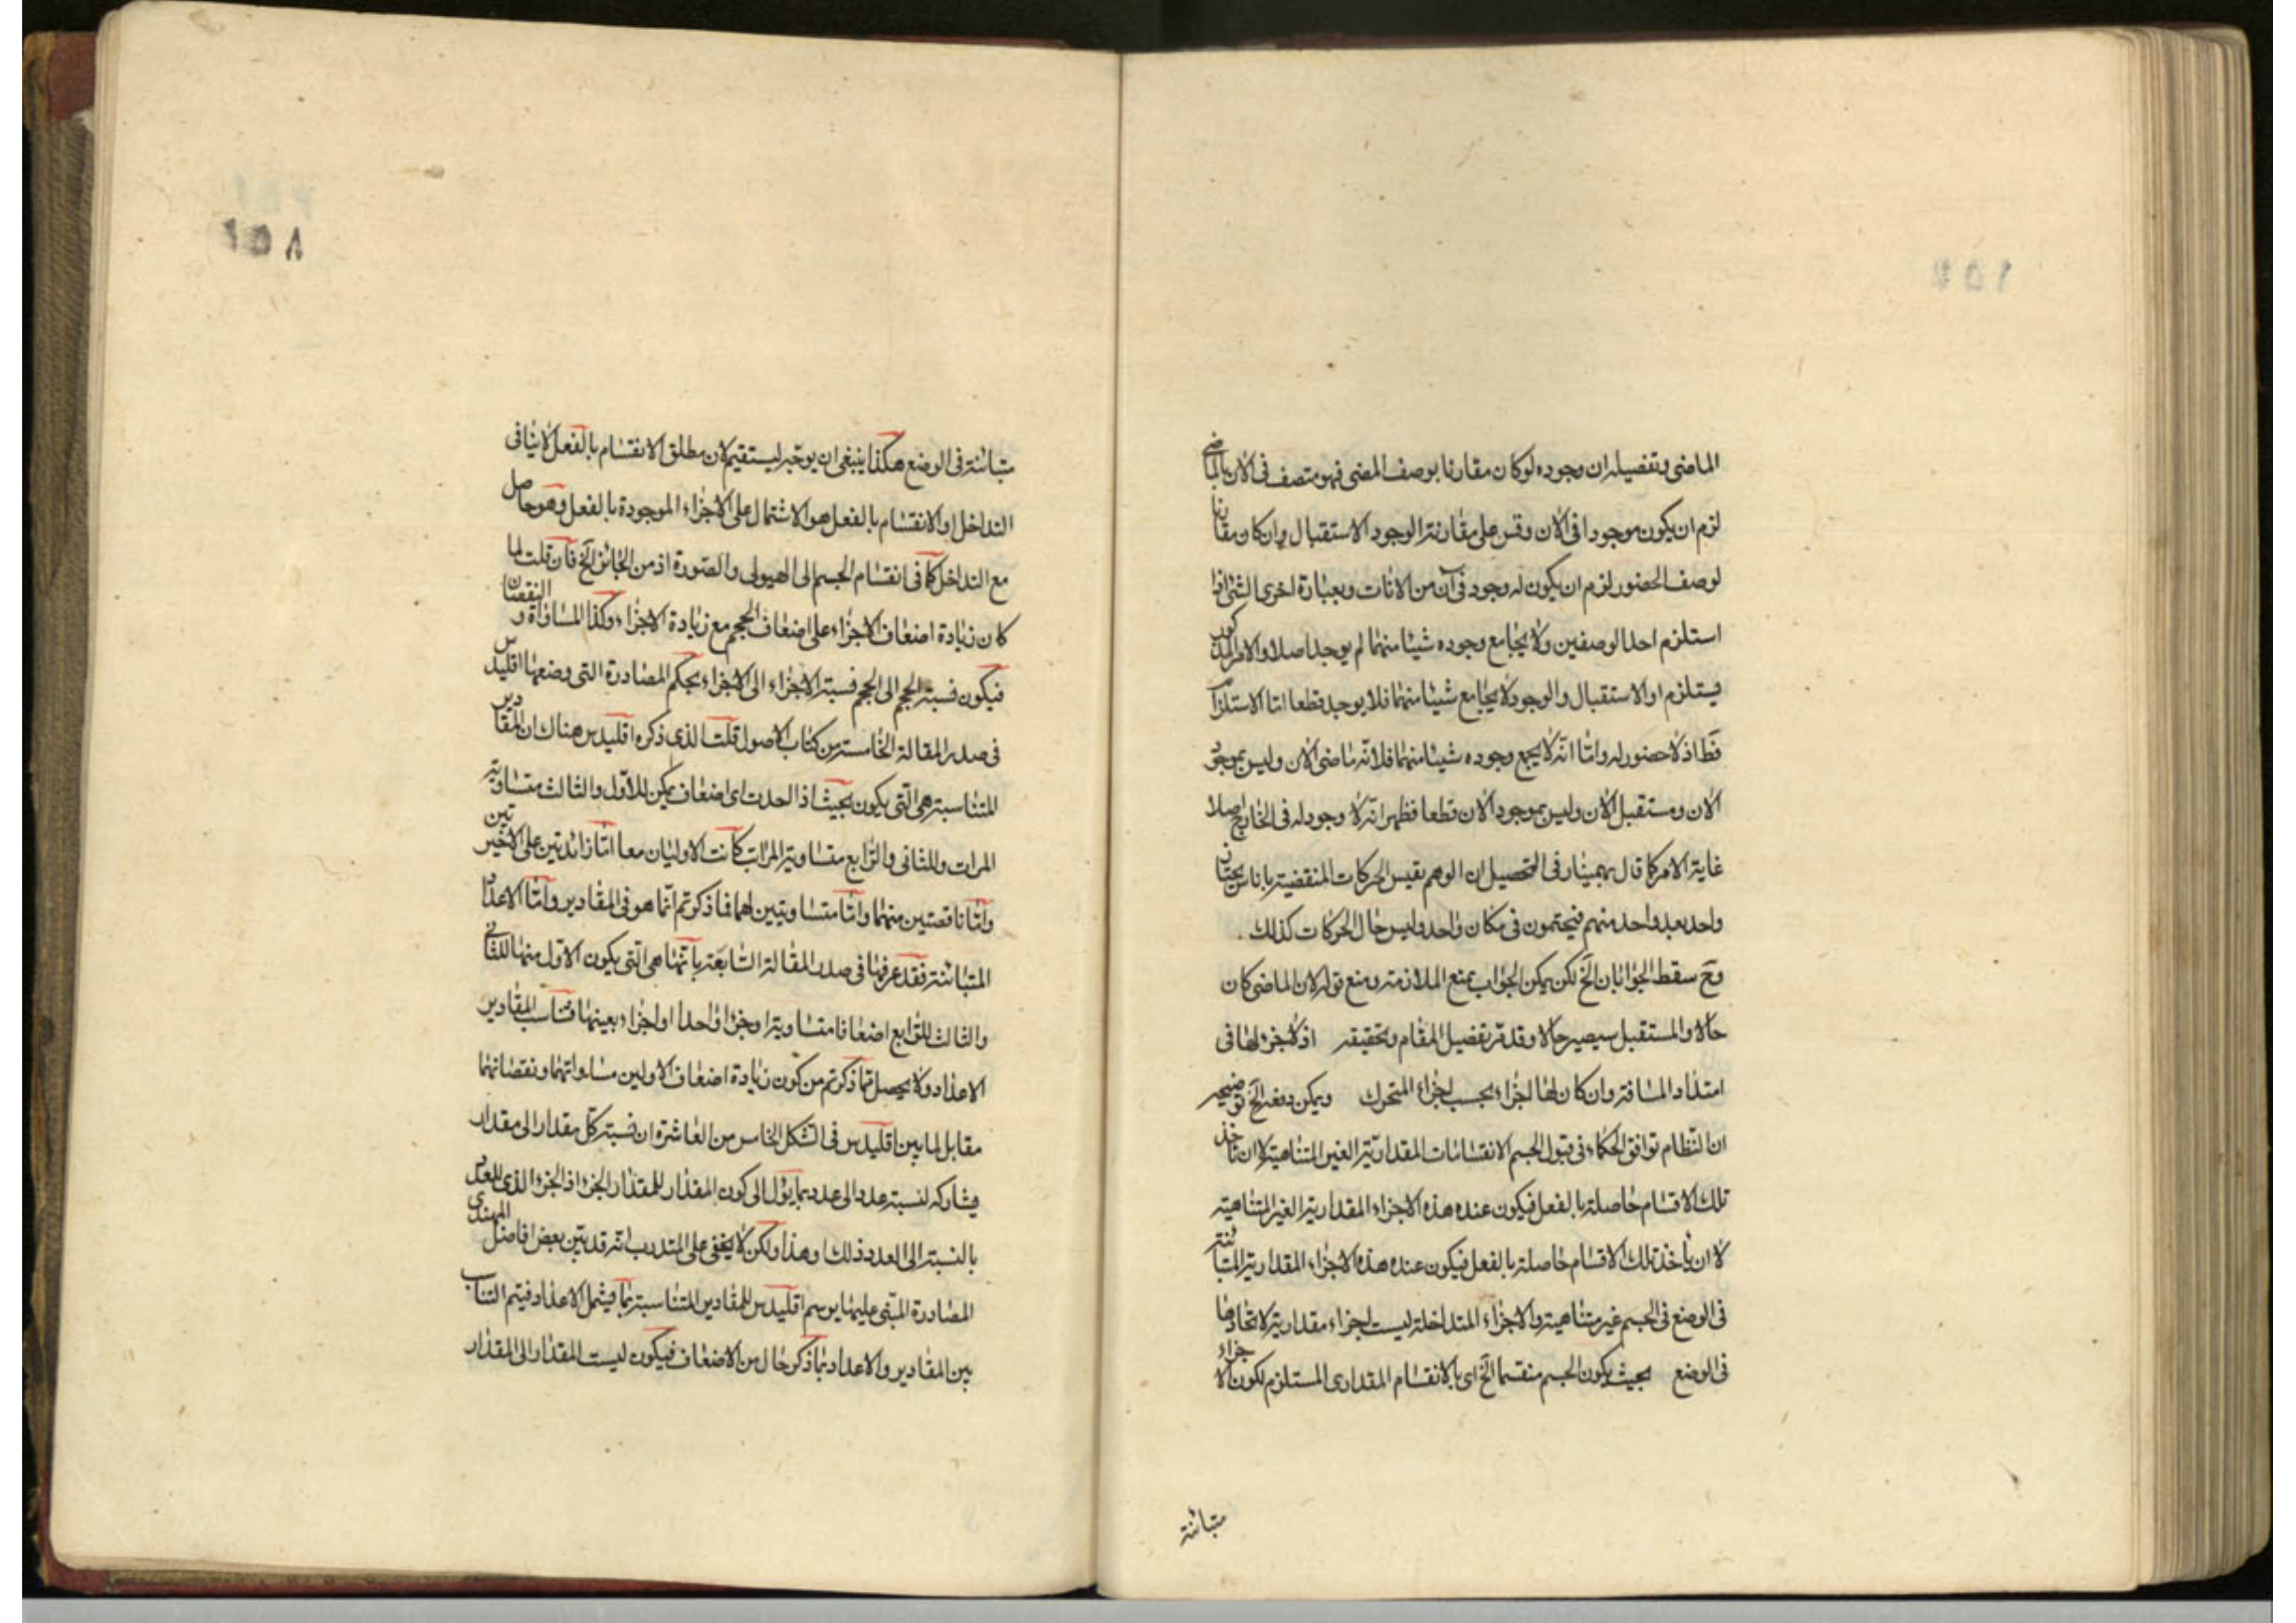 الماضى وتفصيله ان وجوده لو كان مقارنا بوصف المضى فهو متصف فى الان بالماضى
لزم ان يكون موجودا فى الان وقس على مقارنته الوجود الاستقبال وان كان مقارنا
لوصف الحضور لزم ان يكون له وجود فى آن من الانات وبعبارة اخرى الشئ اذا
استلزم احد الوصفين ولا يجامع وجوده شيئا منهما لم يوجد اصلا والامر المذكور
يستلزم او الاستقبال والوجود لا يجامع شيئا منهما فلا يوجد قطعا اما الاستلزام
فظ اذ لا حضور له واما انه لا يجمع وجوده شيئا منهما فلانه ماضى الان وليس بموجود
الان ومستقبل الان وليس بموجود الان قطعا فظهر انه لا وجود له فى الخارج اصلا
غاية الامر كما قال بهمنيار فى التحصيل ان الوهم يقيس الحركات المنقضية باناس يجتمع
واحد بعد واحد منهم فيجتمعون فى مكان واحد وليس حال الحركات كذلك
وح سقط الجواب بان الخ لكن يمكن الجواب بمنع الملازمة ومنع قوله لان الماضى كان
حالا والمستقبل سيصير حالا وقد مر تفصيل المقام وتحقيقه اذ لا جزء لها فى
امتداد المسافة وان كان لها اجزاء بحسب اجزاء المتحرك ويمكن دفعه الخ توضيحه
ان النظام توافق الحكماء فى قبول الجسم الانقسامات المقدارية الغير المتناهية لا ان تاخذ
تلك الاقسام حاصلة بالفعل فيكون عنده هذه الاجزاء المقدارية الغير المتناهية
لا ان ياخذ تلك الاقسام حاصلة بالفعل فيكون عنده هذه الاجزاء المقدارية المتباينة
فى الوضع فى الجسم غير متناهية والاجزاء المتداخلة ليست اجزاء مقدارية لاتحادها
فى الوضع بحيث يكون الجسم منقسما الخ اى بالانقسام المقدارى المستلزم لكون الاجزاء
متبائنة
١٥٨
متبائنة فى الوضع هكذا ينبغى ان يوجه ليستقيم لان مطلق الانقسام بالفعل لا ينافى
التداخل اذ الانقسام بالفعل هو الاشتمال على الاجزاء الموجودة بالفعل وهو حاصل
مع التداخل كما فى انقسام الجسم الى الهيولى والصورة اذ من الجائز الخ فان قلت لما
كان زيادة اضعاف الاجزاء على اضعاف الحجم مع زيادة الاجزاء وكذا المساواة و النقصان
فيكون نسبة الحجم الى الحجم نسبة الاجزاء الى الاجزاء بحكم المصادرة التى وضعها اقليدس
فى صدر المقالة الخامسة من كتاب الاصول قلت الذى ذكره اقليدس هناك ان المقادير
المتناسبة هى التى يكون بحيث اذا اخذت اى اضعاف يمكن للاول والثالث متساوية
المرات وللثانى والرابع متساوية المرات كانت الاوليان معا اما زائدتين على الاخيرتين
واما ناقصتين منهما واما متساويتين لهما فما ذكرتم انما هو فى المقادير واما الاعداد
المتبائنة فقد عرفها فى صدر المقالة السابعة بانها هى التى يكون الاول منها للثانى
والثالث للرابع اضعافا متساوية او جزءا واحدا او اجزاء بعينها فتناسب المقادير
الاعداد ولا يحصل مما ذكرتم من كون زيادة اضعاف الاولين مساواتهما ونقصانهما
مقابل لما بين اقليدس فى الشكل الخامس من العاشرة ان نسبة كل مقدار الى مقدار
يشاركه لنسبة عدد الى عدد بما يؤل الى كون المقدار للمقدار الجزء اذ الجزء الذى للعدد
بالنسبة الى العدد ذلك او هذا ولكن لا يخفى على المتدرب انه قد بين بعض افاضل المهندسى
المصادرة المبنى عليها يوسم اقليدس للمقادير المتناسبة بما يشمل الاعداد فيتم التناسب
بين المقادير والاعداد بما ذكر حال من الاضعاف فيكون ليست المقدار الى المقدار